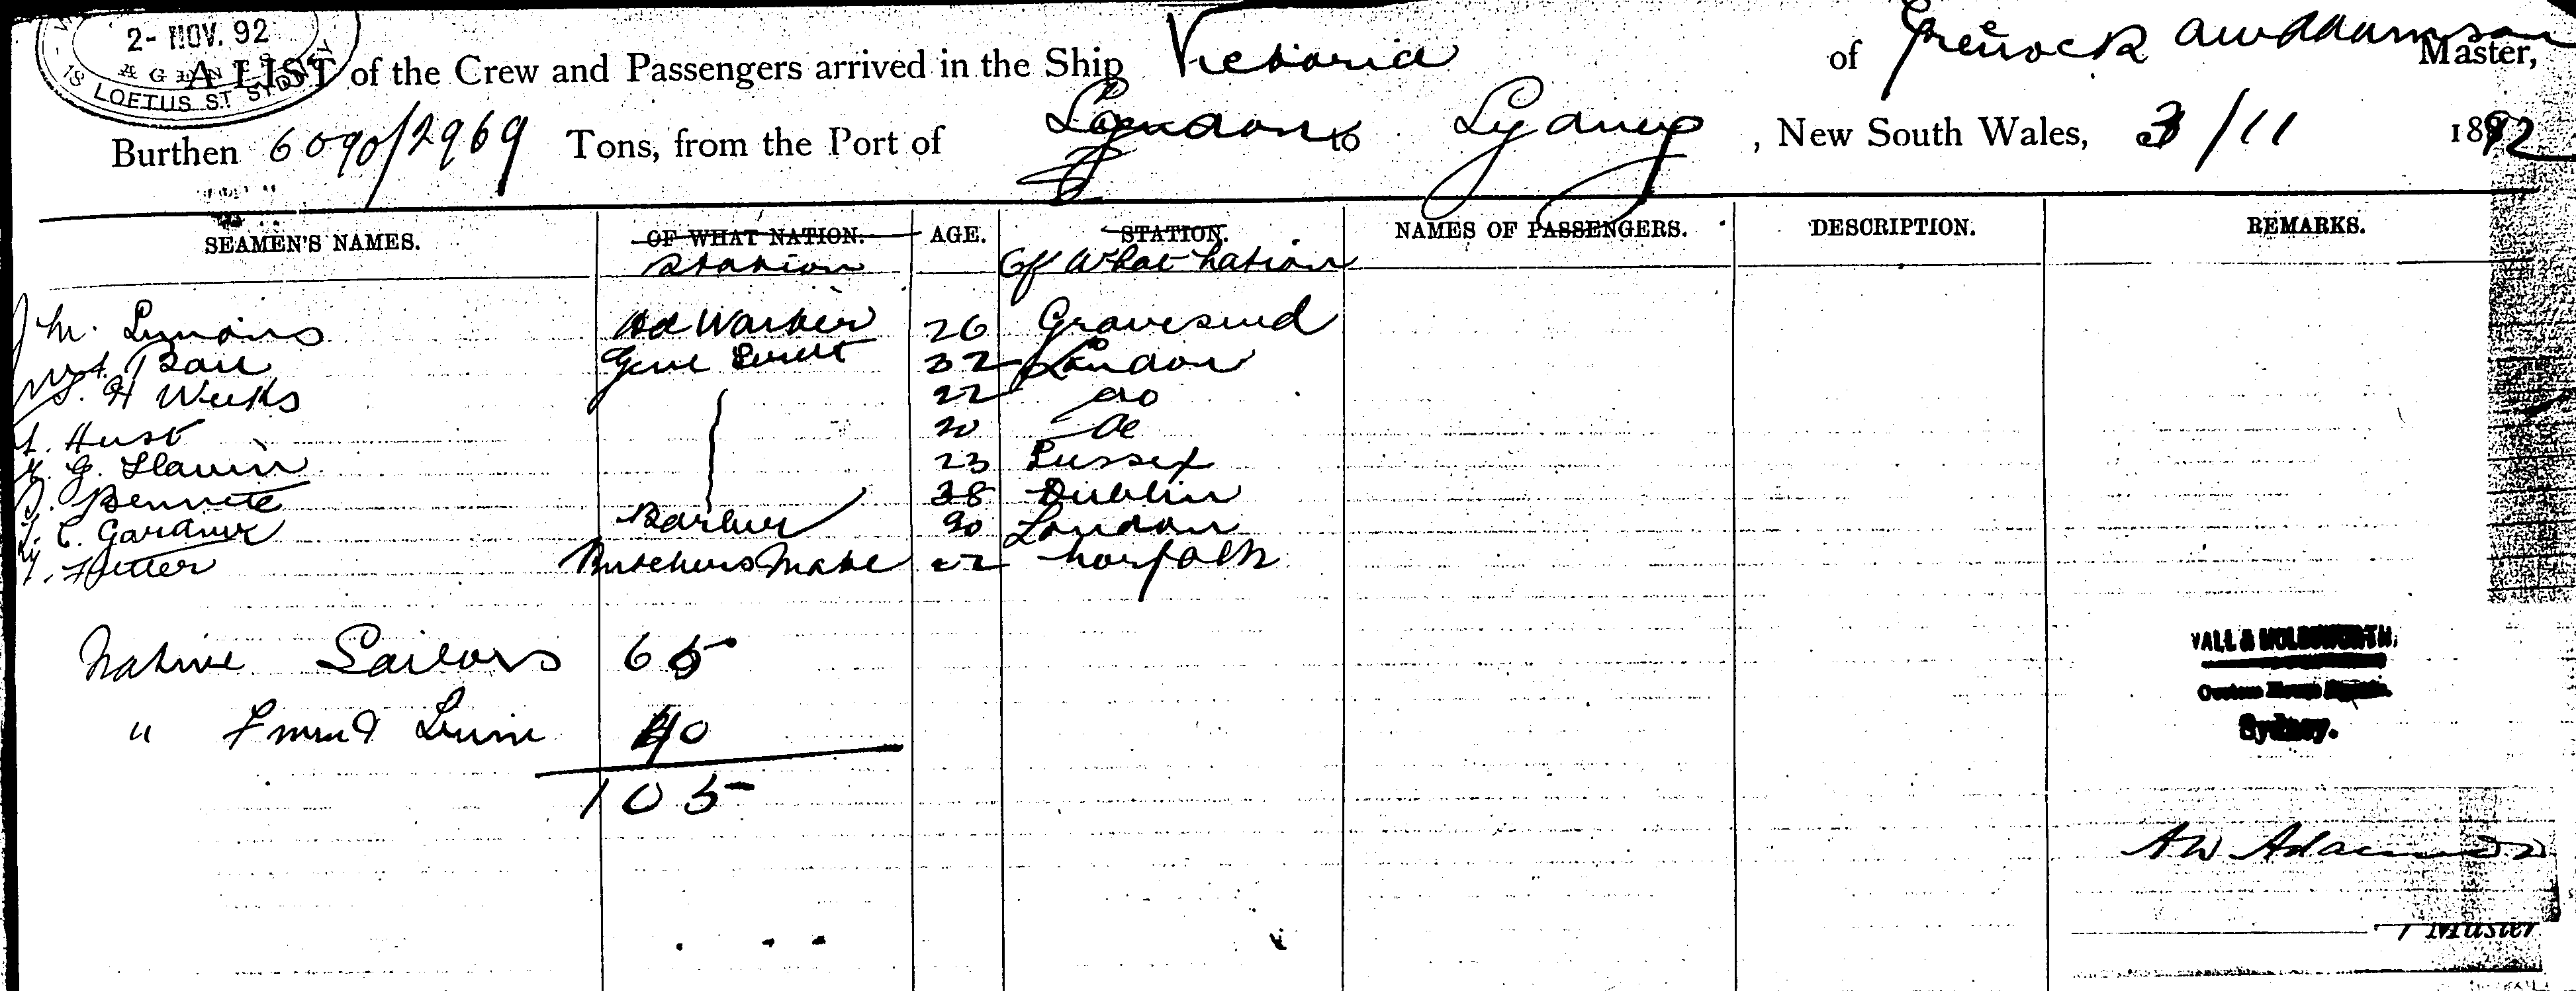 2- NOV. 92
AGENTS
18 LOFTUS ST SYDNEY
A LIST of the Crew and Passengers arrived in the Ship Victoria of Greenock AW Adamson Master,
Burthen 6090/2969 Tons, from the Port of London to Sydney, New South Wales, 3/11 1892
SEAMEN'S NAMES. OF WHAT NATION. AGE. STATION. NAMES OF PASSENGERS. DESCRIPTION. REMARKS.
Station Of What Nation
M. Symons 26 Gravesend
Genl Servt 32 London
H Weeks 22 do
Hust 20 do
G. Slavin 23 Sussex
Bennett 38 Dublin
C. Gardner Barber London
Butchers Mate 22 Norfolk
Native Sailors 65
" Firemen & 40
105
Sydney.
AW Adamson
Master